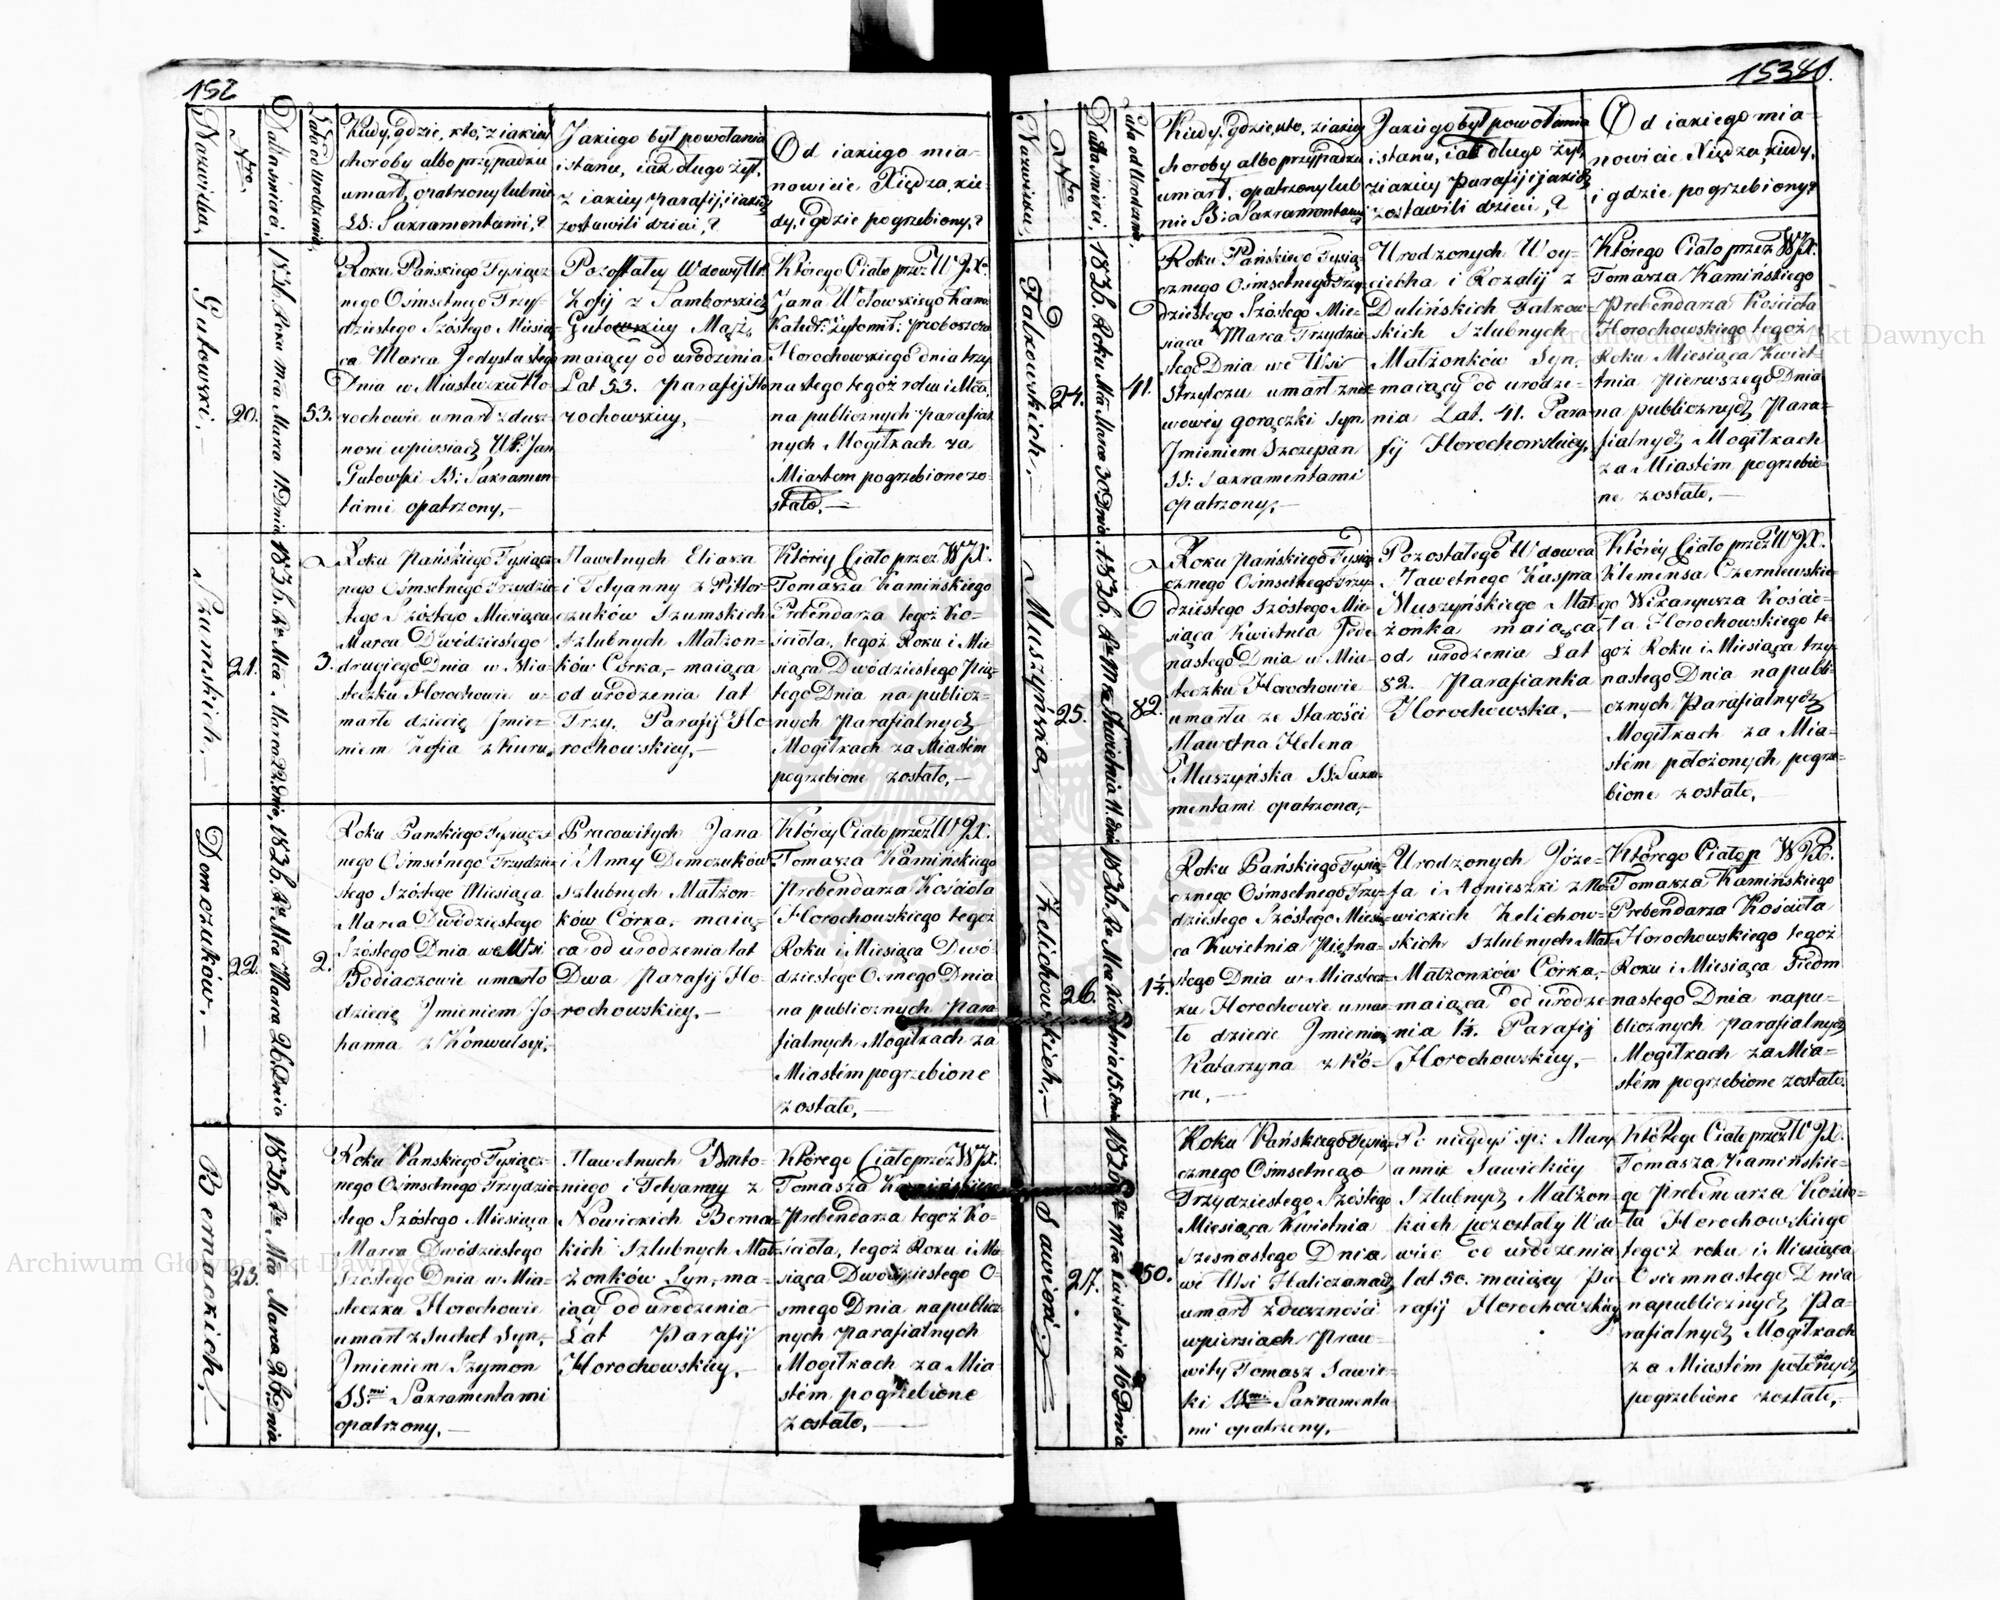 152
Nazwiska,
Nro.
Data śmierci,
Lata od Urodzenia,
Kiedy, gdzie, kto, z iakiey
choroby albo przypadku
umarł, opatrzony lub nie
SS: Sakramentami,?
Jakiego był powołania
i stanu, iak długo żył,
z iakiey parafij, i iakie
zostawili dzieci,?
Od iakiego mia-
nowicie Xiędza, kie-
dy, i gdzie pogrzebiony,?
Gutowski.
20.
1836. Roku Mca Marca 11. Dnia
53.
Roku Pańskiego Tysiącz-
nego Osmsetnego Trzy-
dziestego Szóstego Miesią-
ca Marca Jedynastego
Dnia w Miasteczku Ho-
rochowie umarł z dusz-
nosci w piersiach Ur: Jan
Gutowski SS: Sakramen-
tami opatrzony,
Pozostałey Wdowy Ur:
Zofij z Samborskich
Gutowskiey Mąż,
maiący od urodzenia
Lat 53. Parafij Ho-
rochowskiey,
Którego Ciało przez WJXa
Jana Wołowskiego Kano:
Katedr: Żytomir: proboszcza
Horochowskiego dnia trzy-
nastego tegoż roku i Mca.
na publicznych parafial-
nych Mogiłkach za
Miastem pogrzebione zo-
stało,
Szumskich,
21.
1836. Ro Mca Marca 22. dnia,
3.
Roku Pańskiego Tysiącz-
nego Osmsetnego Trzydzie-
stego Szóstego Miesiąca
Marca Dwódziestego
drugiego Dnia w Mia-
steczku Horochowie u-
marło dziecię Jmie-
niem Zofia z Kuru,
Sławetnych Eliasza
i Tetyanny z Pittor-
czuków Szumskich
szlubnych Małżon-
ków Córka, maiąca
od urodzenia lat
Trzy, Parafij Ho-
rochowskiey,
Którey Ciało przez WJX.
Tomasza Kamińskiego
Prebendarza tegoż Ko-
ścioła, tegoż Roku i Mie-
siąca Dwódziestego pią-
tego Dnia na publicz-
nych parafialnych
Mogiłkach za Miastém
pogrzebione zostało,
Domczuków.
22.
1836. Ro Mca Marca 26. Dnia
2.
Roku Panskiego Tysiącz-
nego Osmsetnego Trzydzie-
stego Szóstego Miesiąca
Marca Dwódziestego
Szóstego Dnia we Wsi
Bodiaczowie umarło
dziecię Jmieniem Jo-
hanna z Konwulsyi,
Pracowitych Jana
i Anny Demczuków
szlubnych Małżon-
ków Córka, maią-
ca od urodzenia lat
Dwa Parafij Ho-
rochowskiey,
Którey Ciało przez WJX.
Tomasza Kamińskiego
Prebendarza Kościoła
Horochowskiego tegoż
Roku i Miesiąca Dwó-
dziestego Osmego Dnia
na publicznych Para-
fialnych Mogiłkach za
Miastém pogrzebione
zostało,
Bernackich,
23.
1836. Ro Mca Marca 26. Dnia
Roku Panskiego Tysiącz-
nego Osmsetnego Trzydzie-
stego Szóstego Miesiąca
Marca Dwódziestego
Szóstego Dnia w Mia-
steczku Horochowie
umarł z Suchot Syn,
Jmieniem Szymon
SSmi Sakramentami
opatrzony,
Sławetnych Anto-
niego i Tetyanny z
Nowickich Berna-
ckich szlubnych Mał-
żonków Syn, ma-
iący od urodzenia
Lat Parafij
Horochowskiey,
Którego Ciało przez WJX.
Tomasza Kamińskiego
Prebendarza tegoż Ko-
ścioła, tegoż Roku i Mie-
siąca Dwódziestego O-
smego Dnia na publicz-
nych parafialnych
Mogiłkach za Mia-
stém pogrzebione
zostało,
153
Nazwiska,
Nro
Data śmierci,
Lata od Urodzenia,
Kiedy, gdzie, kto, z iakiey
choroby albo przypadku
umarł, opatrzony lub
nie SS: Sakramentami?
Jakiego był powołania
i stanu, iak długo żył,
z iakiey parafij i iakie
zostawili dzieci,?
Od iakiego mia-
nowicie Xiędza, kiedy,
i gdzie pogrzebiony?
Falkowskich,
24.
1836. Roku Mca Marca 30. Dnia
41.
Roku Pańskiego Tysią-
cznego Osmsetnego Trzy-
dziestego Szóstego Mie-
siąca Marca Trzydzie-
stego Dnia we Wsi
Strzylczu umarł z ner-
wowey gorączki Syn
Jmieniem Szczepan
SS: Sakramentami
opatrzony,
Urodzonych Woy-
ciecha i Rozalij z
Dulińskich Falkow-
skich szlubnych
Małżonków Syn,
maiący od urodze-
nia Lat. 41. Para-
fij Horochowskiey,
Którego Ciało przez WJX.
Tomasza Kamińskiego
Prebendarza Kościoła
Horochowskiego tegoż
Roku Miesiąca Kwiet-
nia pierwszego Dnia
na publicznych Para-
fialnych Mogiłkach
za Miastém pogrzebio-
ne zostało,
Muszyńska,
25.
1836. Ro Mca Kwietnia 11. dnia
82.
Roku Pańskiego Tysią-
cznego Osmsetnego Trzy-
dziestego Szóstego Mie-
siąca Kwietnia Jede-
nastego Dnia w Mia-
steczku Horochowie
umarła ze Starości
Sławetna Helena
Muszyńska SS: Sakra-
mentami opatrzona,
Pozostałego Wdowca
Sławetnego Kaspra
Muszyńskiego Mał-
żonka maiąca
od urodzenia Lat
82. Parafianka
Horochowska,
Którey Ciało przez WJX.
Klemensa Czerniewskie-
go Wikaryusza Kościo-
ła Horochowskiego te-
goż Roku i Miesiąca trzy-
nastego Dnia na publi-
cznych Parafialnych
Mogiłkach za Mia-
stém położonych pogrze-
bione zostało,
Zelichowskich,
26.
1836. Ro Mca Kwietnia 15. Dnia
1½.
Roku Pańskiego Tysią-
cznego Osmsetnego Trzy-
dziestego Szóstego Miesią-
ca Kwietnia Piętna-
stego Dnia w Miastecz-
ku Horochowie umar-
ło dziecie Jmieniem
Katarzyna z Kó-
ru,
Urodzonych Józe-
fa i Agnieszki z No-
wickich Zelichow-
skich szlubnych Mał-
Małżonków Córka,
maiąca od urodze-
nia 1½. Parafij
Horochowskiey,
Którego Ciało p WJX.
Tomasza Kamińskiego
Prebendarza Kościoła
Horochowskiego tegoż
Roku i Miesiąca Siedm
nastego Dnia na pu-
blicznych parafialnych
Mogiłkach za Mia-
stém pogrzebione zostało.
Sawicki.
27.
1836 Ro Mca Kwietnia 16 Dnia
50.
Roku Pańskiego Tysią-
cznego Osmsetnego
Trzydziestego Szóstego
Miesiąca Kwietnia
Szesnastego Dnia
we Wsi Haliczanach
umarł z duszności
w piersiach Praco-
wity Tomasz Sawic-
ki SSmi Sakramenta
mi opatrzony,
Po niegdyś śp: Mary-
annie Sawickiey
Szlubnych Małżon-
kach pozostały Wdo-
wiec od urodzenia
lat 50. maiący Pa-
rafij Horochowskiey
Którego Ciało przez WJX.
Tomasza Kamińskie-
go Prebendarza Kościo-
ła Horochowskiego
tegoż roku i Miesiąca
Osiemnastego Dnia
na publicznych Pa-
rafialnych Mogiłkach
za Miastém położonych
pogrzebione zostało,
Archiwum Główne Akt Dawnych
Archiwum Główne Akt Dawnych